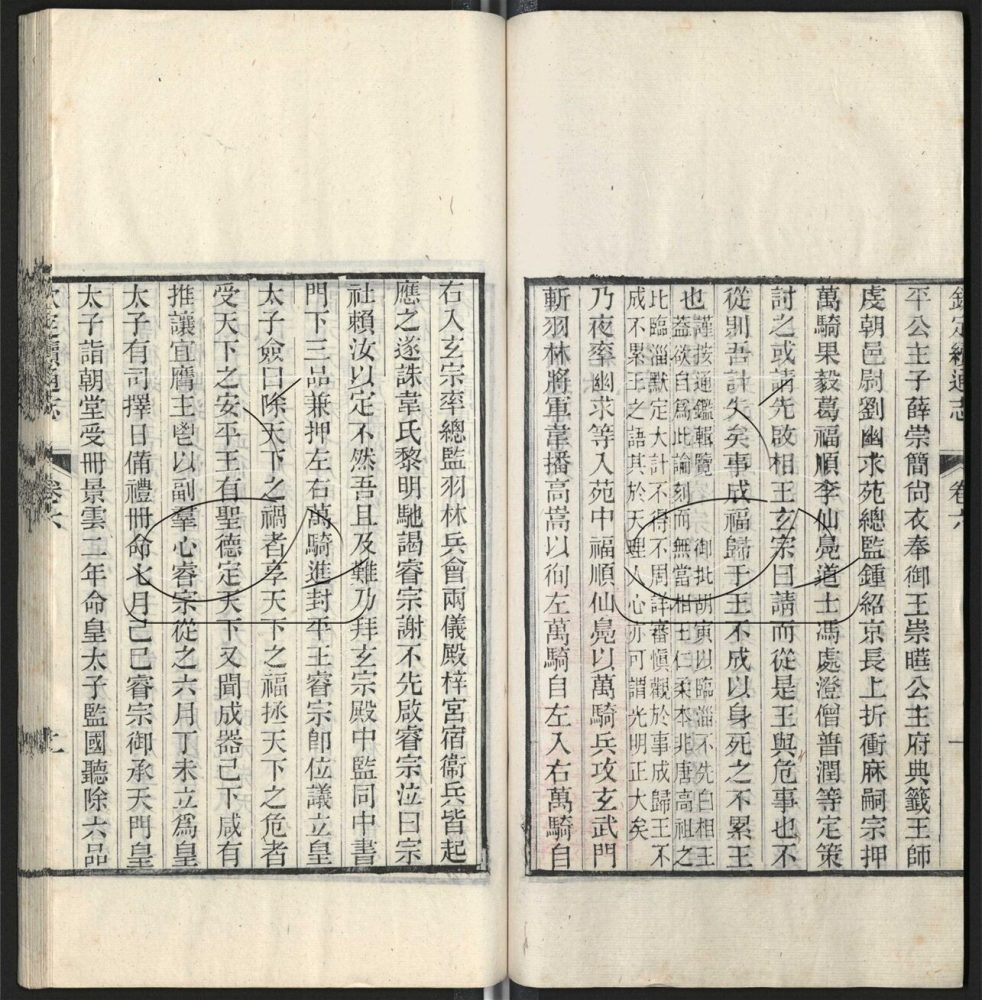 欽定續通志 卷六
平公主子薛崇簡尙衣奉御王崇曄公主府典籤王師
虔朝邑尉劉幽求苑總監鍾紹京長上折衝麻嗣宗押
萬騎果毅葛福順李仙鳧道士馮處澄僧普潤等定策
討之或請先啟相王玄宗曰請而從是王與危事也不
從則吾計失矣事成福歸于王不成以身死之不累王
也
謹按通鑑輯覽 御批胡寅以臨淄不先白相王
蓋欲自爲此論刻而無當相王仁柔本非唐高祖之
比臨淄默定大計不得不周詳審愼觀於事成歸王不
成不累王之語其於天理人心亦可謂光明正大矣
乃夜率幽求等入苑中福順仙鳧以萬騎兵攻玄武門
斬羽林將軍韋播高嵩以徇左萬騎自左入右萬騎自
右入玄宗率總監羽林兵會兩儀殿梓宮宿衞兵皆起
應之遂誅韋氏黎明馳謁睿宗謝不先啟睿宗泣曰宗
社賴汝以定不然吾且及難乃拜玄宗殿中監同中書
門下三品兼押左右萬騎進封平王睿宗卽位議立皇
太子僉曰除天下之禍者享天下之福拯天下之危者
受天下之安平王有聖德定天下又聞成器已下咸有
推讓宜膺主鬯以副羣心睿宗從之六月丁未立爲皇
太子有司擇日備禮冊命七月己巳睿宗御承天門皇
太子詣朝堂受冊景雲二年命皇太子監國聽除六品
欽定續通志 卷六